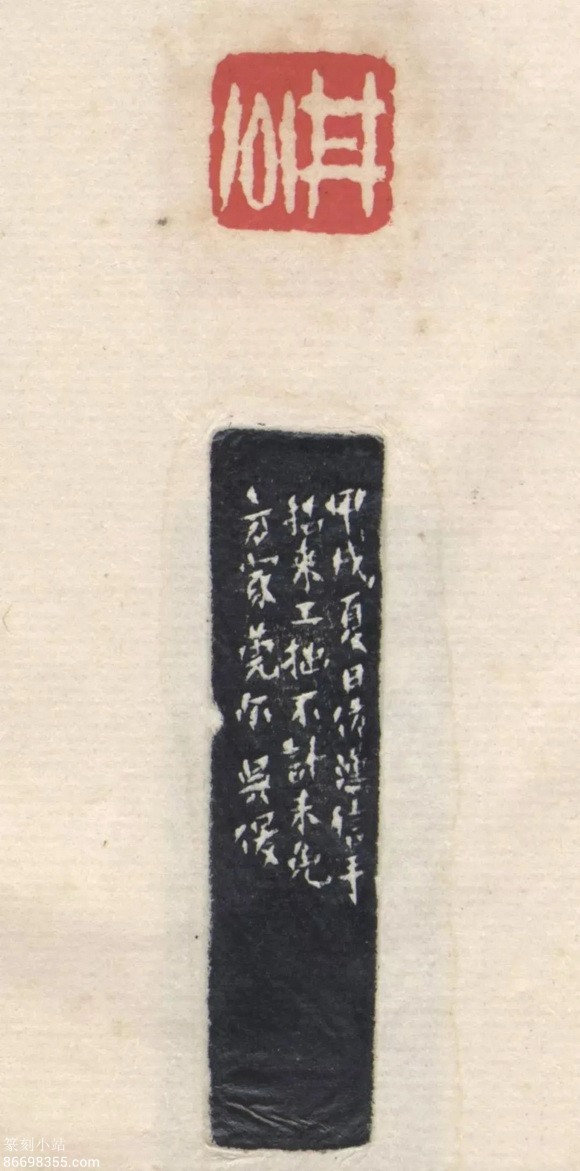 甲戌夏日仿漢信手
拈來工拙不計未免
方家莞尔 吳
篆刻小站
86698355.com